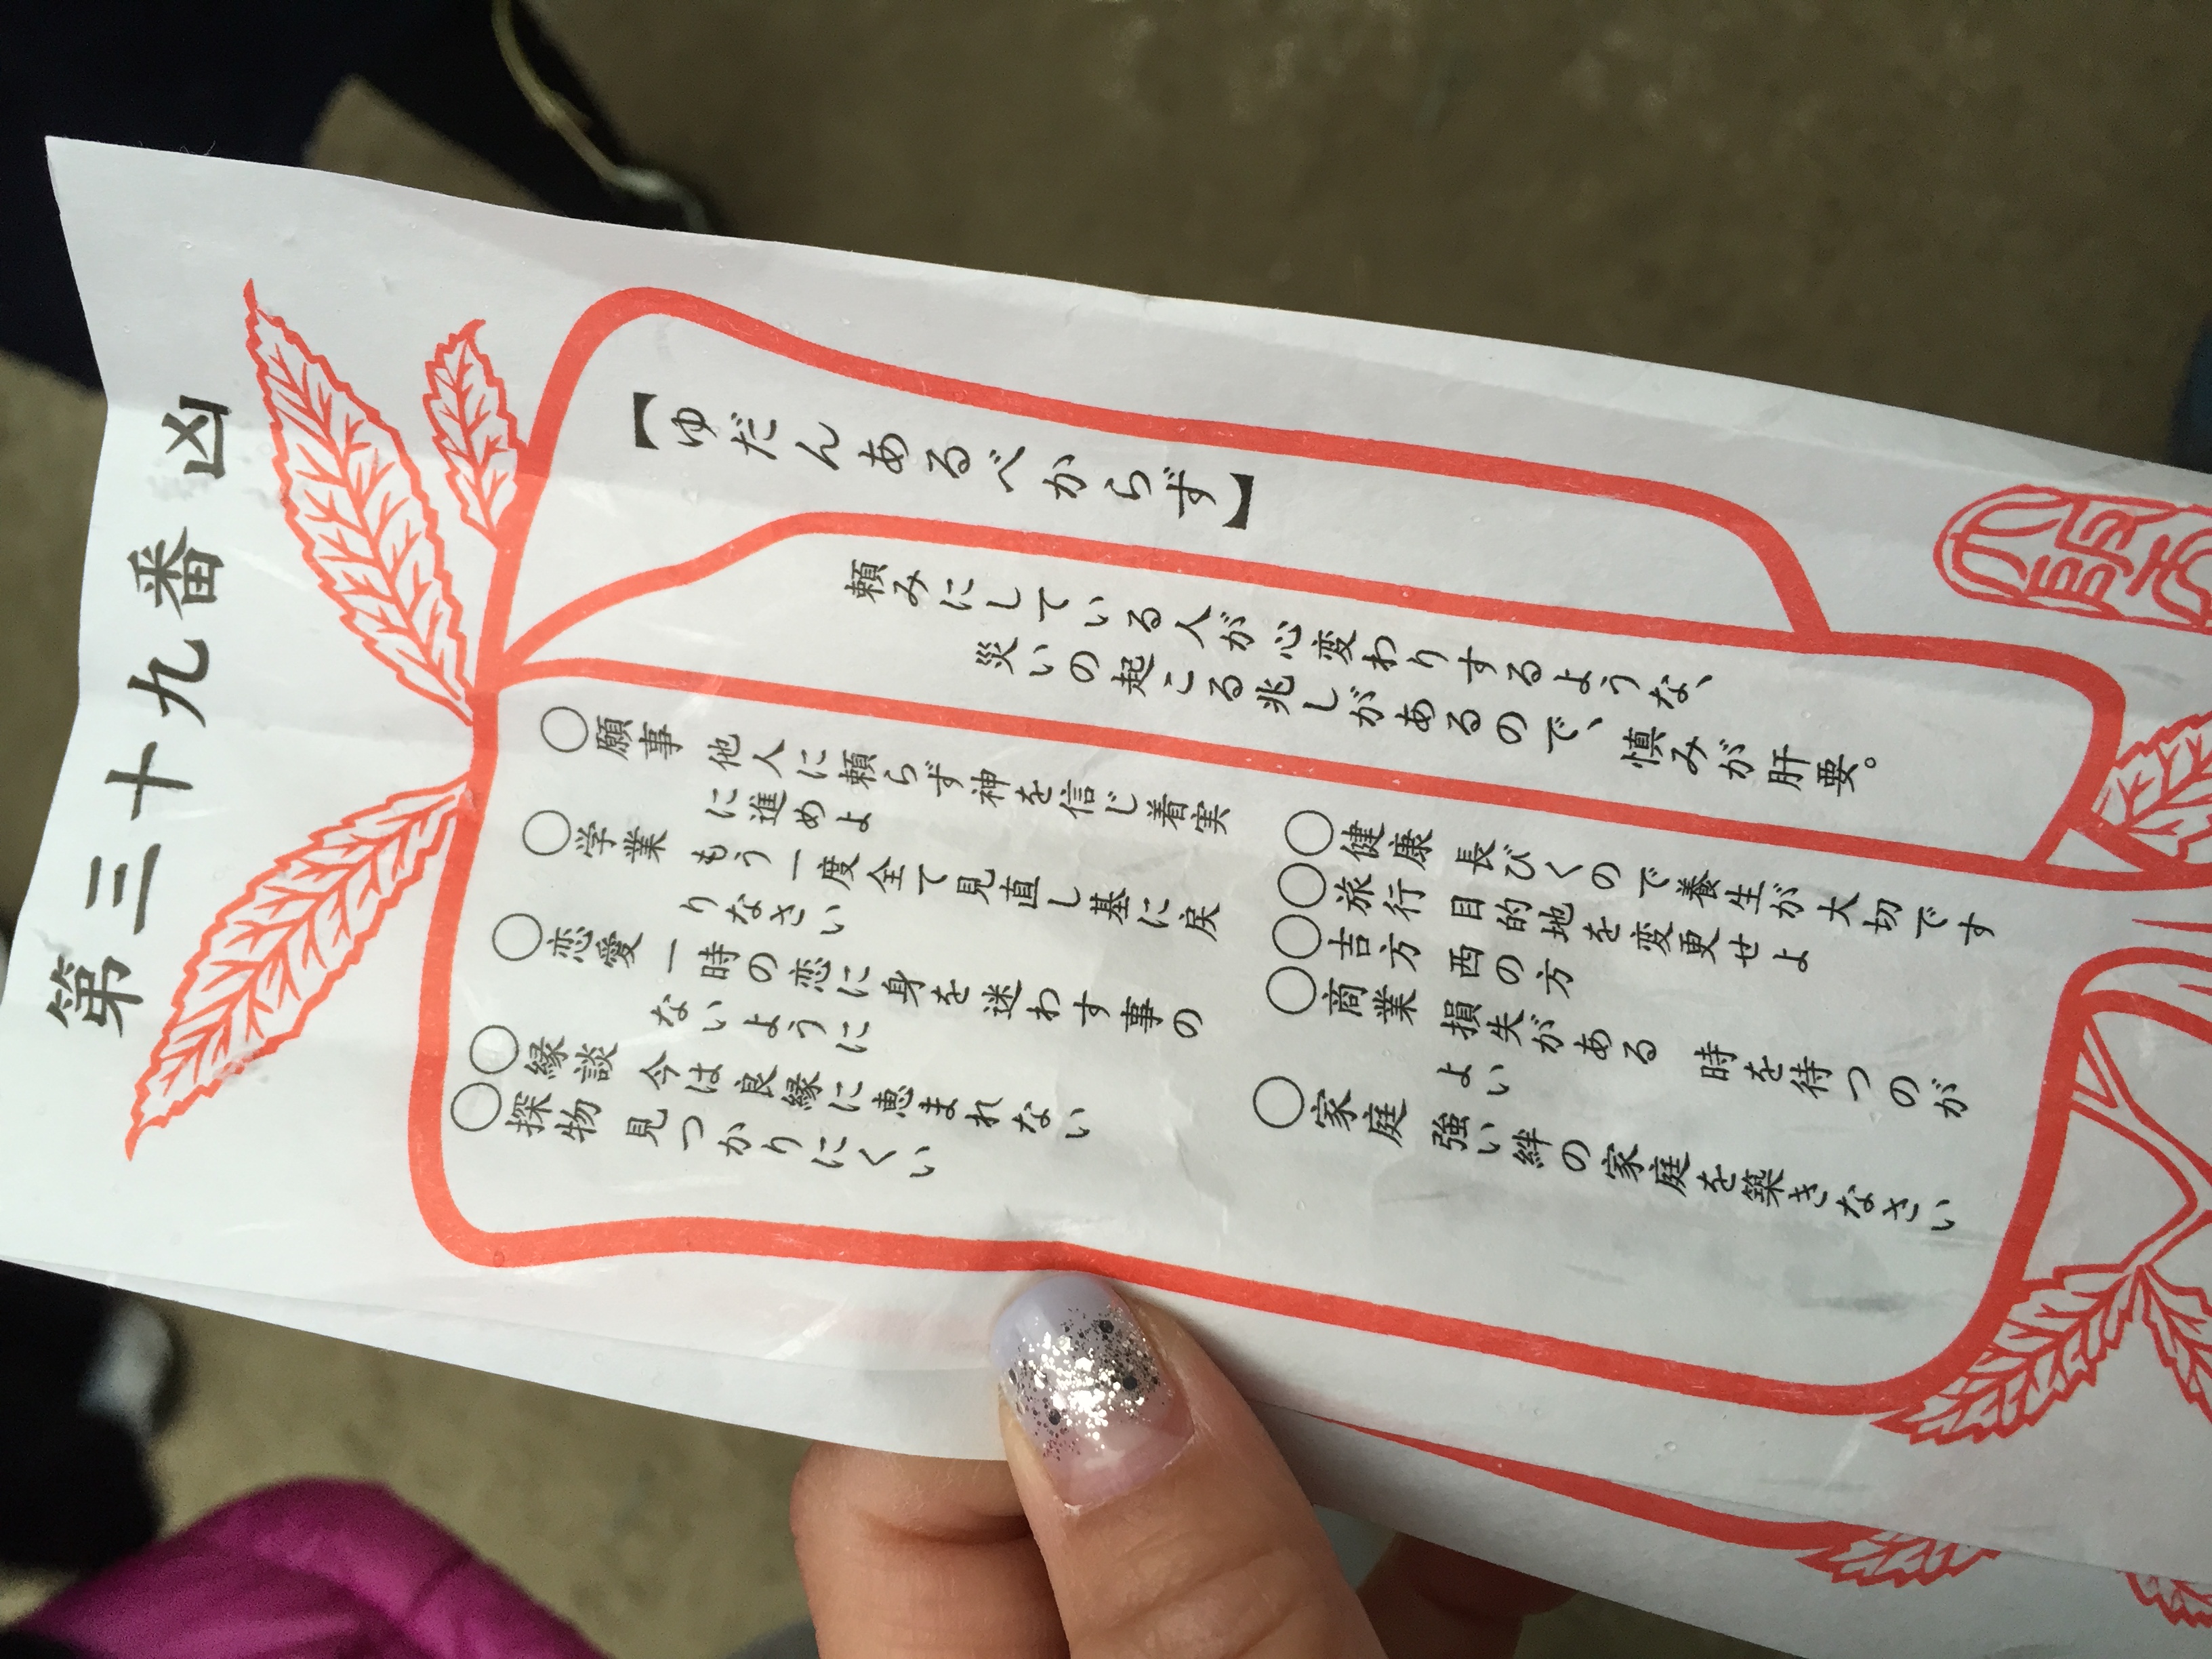 第三十九番 凶
【ゆだんあるべからず】
頼みにしている人が心変わりするような、
災いの起こる兆しがあるので、慎みが肝要。
○願事 他人に頼らず神を信じ着実
に進めよ
○学業 もう一度全て見直し基に戻
りなさい
○恋愛 一時の恋に身を迷わす事の
ないように
○縁談 今は良縁に恵まれない
○探物 見つかりにくい
○健康 長びくので養生が大切です
○旅行 目的地を変更せよ
○吉方 西の方
○商業 損失がある 時を待つのが
よい
○家庭 強い絆の家庭を築きなさい